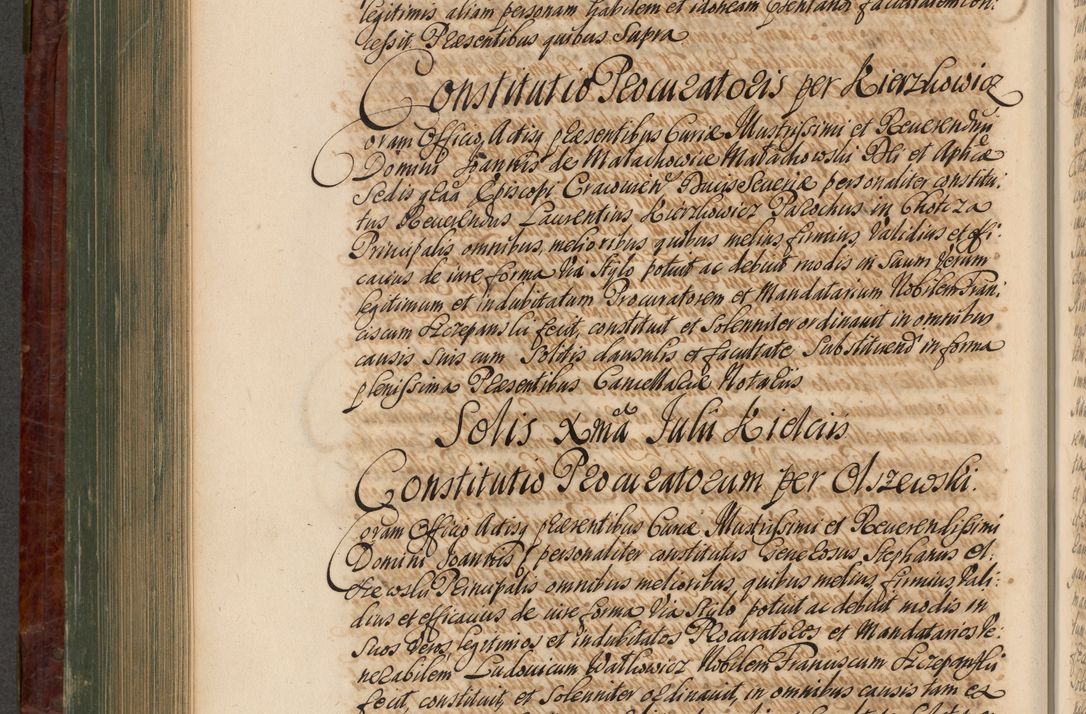 legitimis aliam personam habilem et idoneam
cessit Præsentibus quibus Supra
Constitutio Procuratoris per Kierzkowicz
Coram Officio, Actisq præsentibus Curiæ Illustrissimi et Reuerendissi
Domini Joannis de Małachowice Małachowski Dei et Aplicæ
Sedis graã Episcopi Cracouien Ducis Seueriæ personaliter constitu:
tus Reuerendus Laurentius Kierzkowicz Parochus in Chotcza
Principalis omnibus, melioribus quibus melius, firmius, Validius et effi:
cacius de iure forma Via Stylo potuit ac debuit modis in Suum Verum
legitimum et indubitatum Procuratorem et Mandatarium Nobilem Fran:
ciscum Szczepanski fecit, constituit et Solenniter ordinauit in omnibus
causis suis cum Solitis clausulis et facultate Substituend in forma
plenissima Præsentibus Cancellariæ Notariis
Solis Xmã Julii Kielciis
Constitutio Procuratorum per Olszewski.
Coram Officio Actisq præsentibus Curiæ Illustrissimi et Reuerendissimi
Domini Joannis personaliter constitutus Generosus Stephanus Ol:
szewski Principalis omnibus melioribus, quibus melius, firmius, Vali:
dius et efficacius de iure forma Via Stylo potuit ac debuit modis in
Suos Veros legitimos et indubitatos Procuratores et Mandatarios Ve:
nerabilem Ludouicum Watkowicz Nobilem Franciscum Szczepanski
fecit, constituit, et Solenniter ordinauit, in omnibus causis tam ex